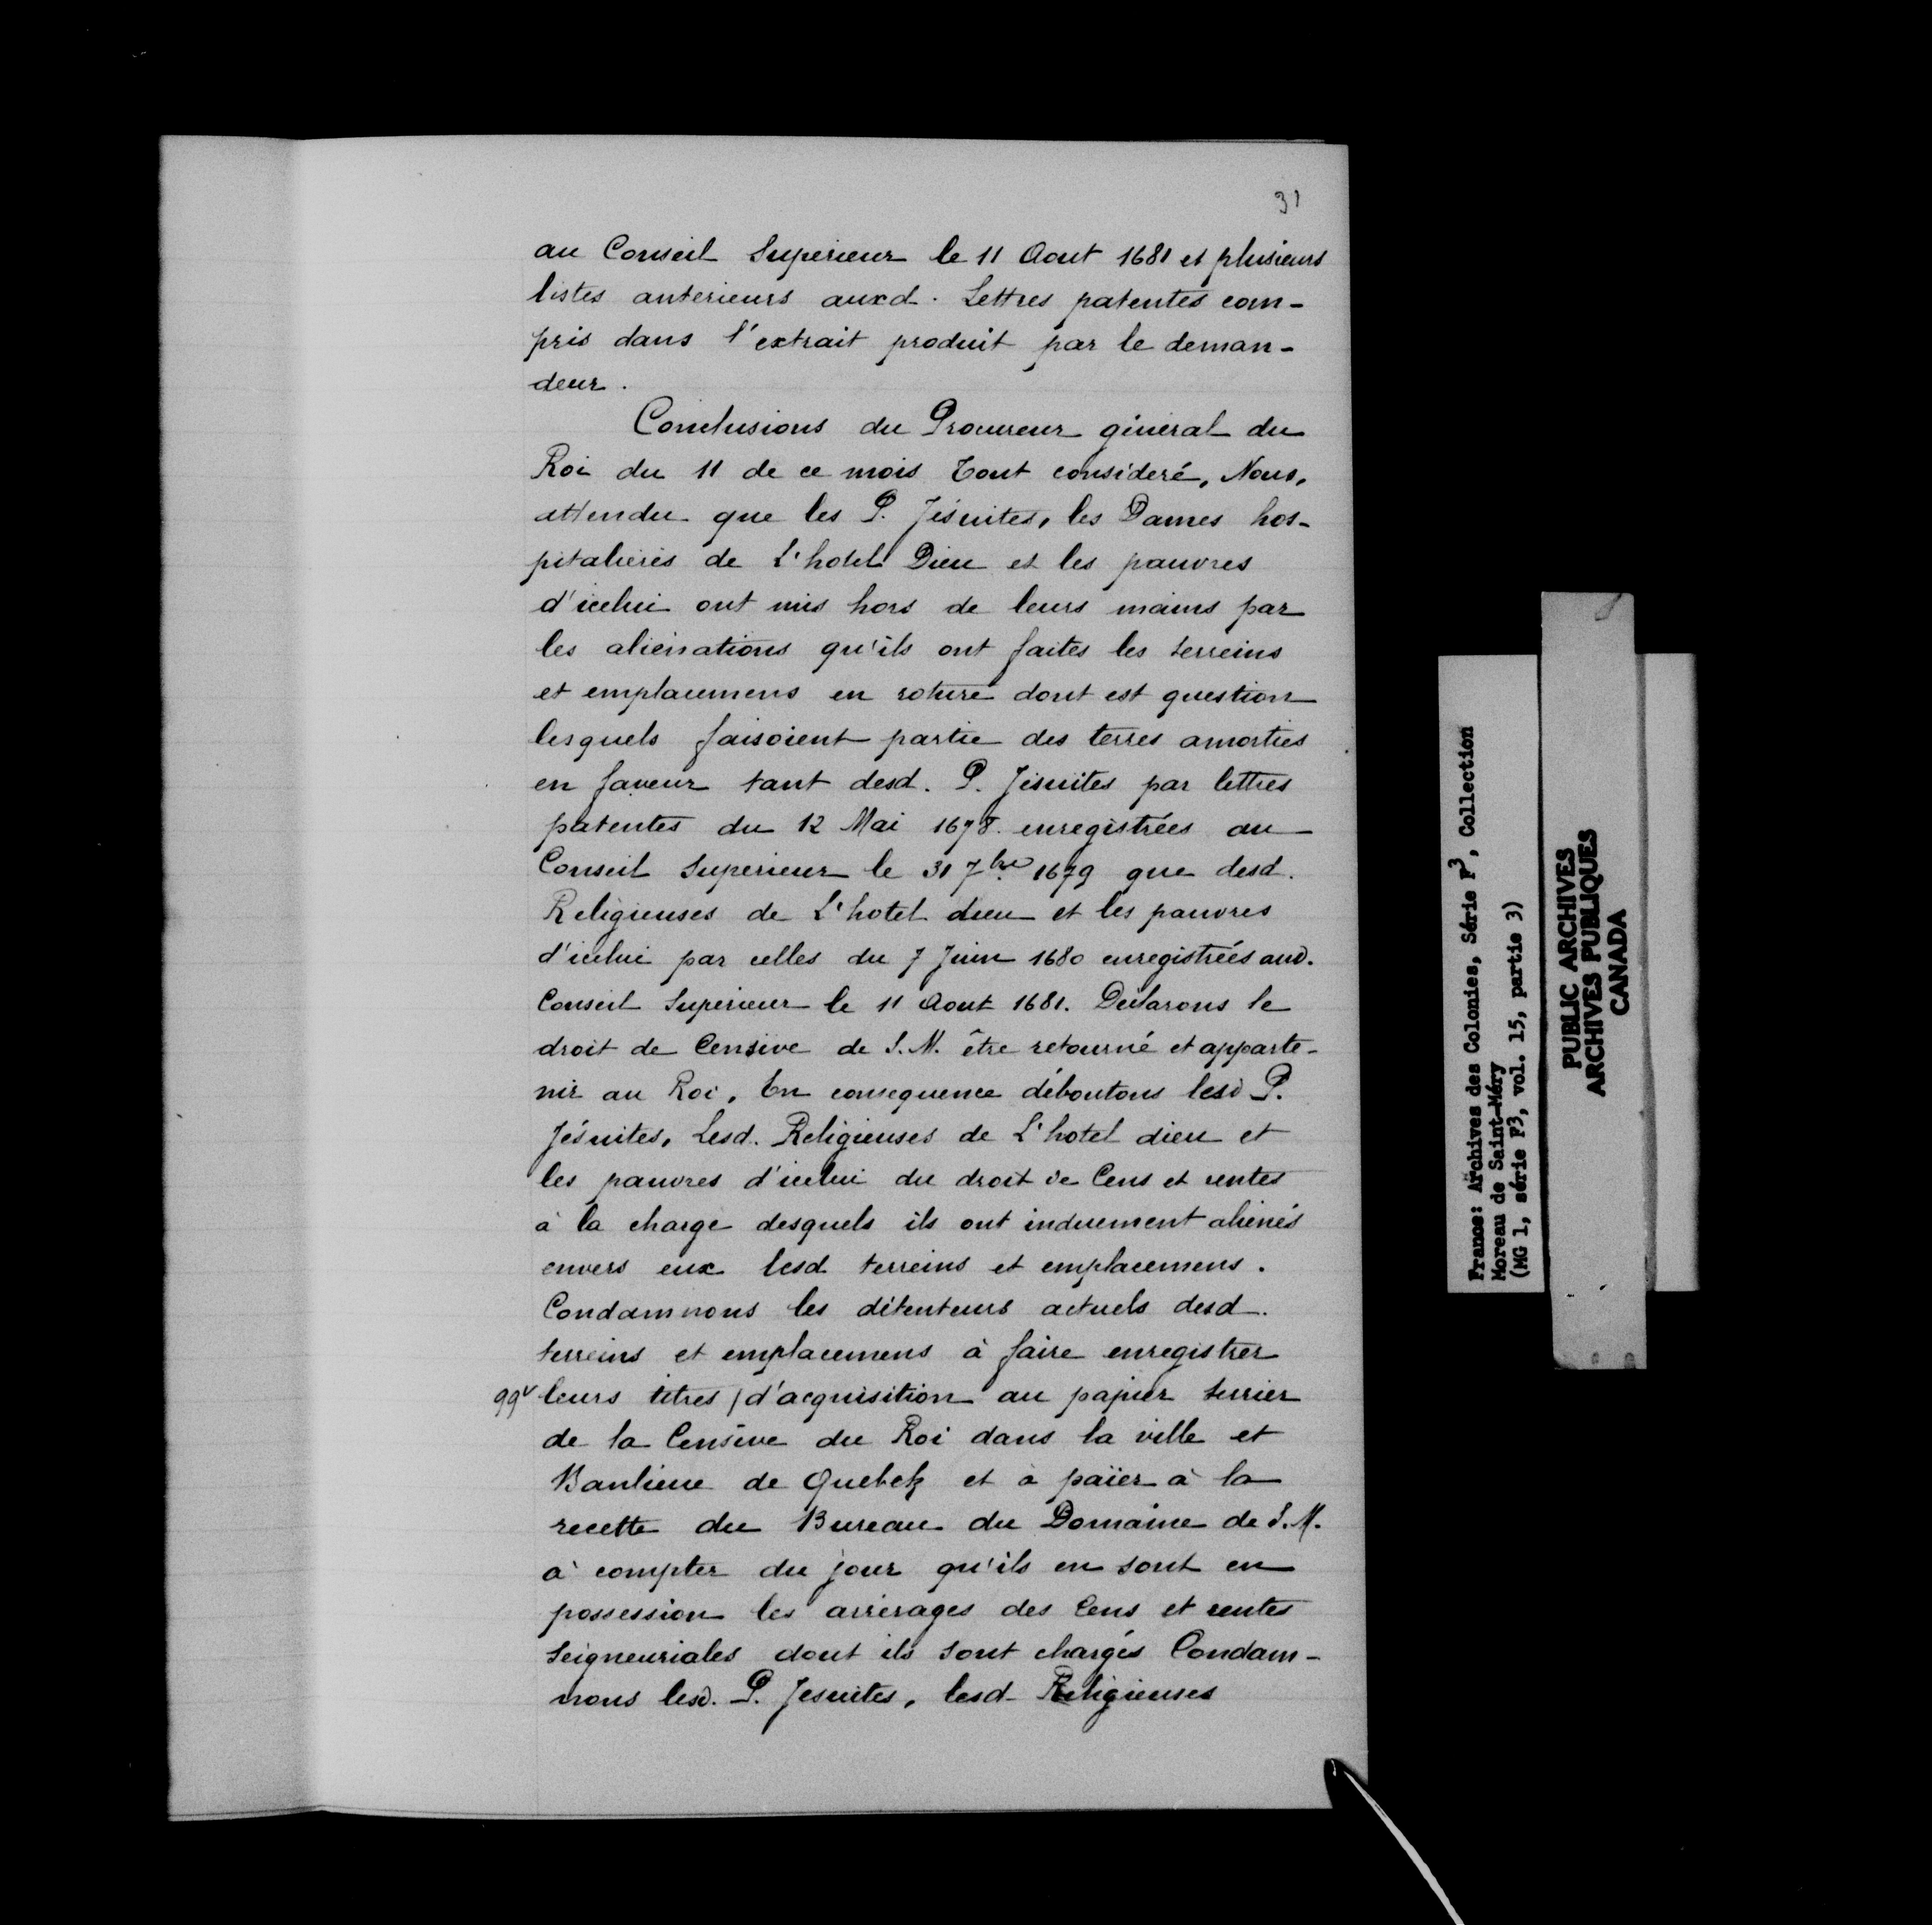 31
au Conseil Superieur le 11 Aout 1681 et plusieurs
listes anterieurs auxd. Lettres patentes com-
pris dans l'extrait produit par le deman-
deur.
Conclusions du Procureur général du
Roi du 11 de ce mois Tout consideré, Nous,
attendu que les P. Jésuites, les Dames hos-
pitalieres de L'hotel Dieu et les pauvres
d'icelui ont mis hors de leurs mains par
les aliénations qu'ils ont faites les terreins
et emplacemens en roture dont est question
lesquels faisoient partie des terres amorties
en faveur tant desd. P. Jésuites par lettres
patentes du 12 Mai 1678. enregistrées au
Conseil Superieur le 31 7bre 1679 que desd.
Religieuses de L'hotel dieu et les pauvres
d'icelui par celles du 7 Juin 1680 enregistrées aud.
Conseil Superieur le 11 Aout 1681. Declarons le
droit de Censive de S.M. être retourné et apparte-
nir au Roi, En consequence déboutons lesd P.
Jésuites, Lesd. Religieuses de L'hotel dieu et
les pauvres d'icelui du droit de Cens et rentes
à la charge desquels ils ont induement alienés
envers eux lesd terreins et emplacemens.
Condamnons les détenteurs actuels desd.
terreins et emplacemens à faire enregistrer
99v leurs titres / d'acquisition au papier terrier
de la Censive du Roi dans la ville et
Banlieue de Quebek et à païer à la
recette du Bureau du Domaine de S.M.
à compter du jour qu'ils en sont en
possession les arrerages des Cens et rentes
Seigneuriales dont ils sont chargés Condam-
nons lesd. P. Jesuites, lesd Religieuses
France: Archives des Colonies, Série F3, Collection
Moreau de Saint-Méry
(MG 1, série F3, vol. 15, partie 3)
PUBLIC ARCHIVES
ARCHIVES PUBLIQUES
CANADA